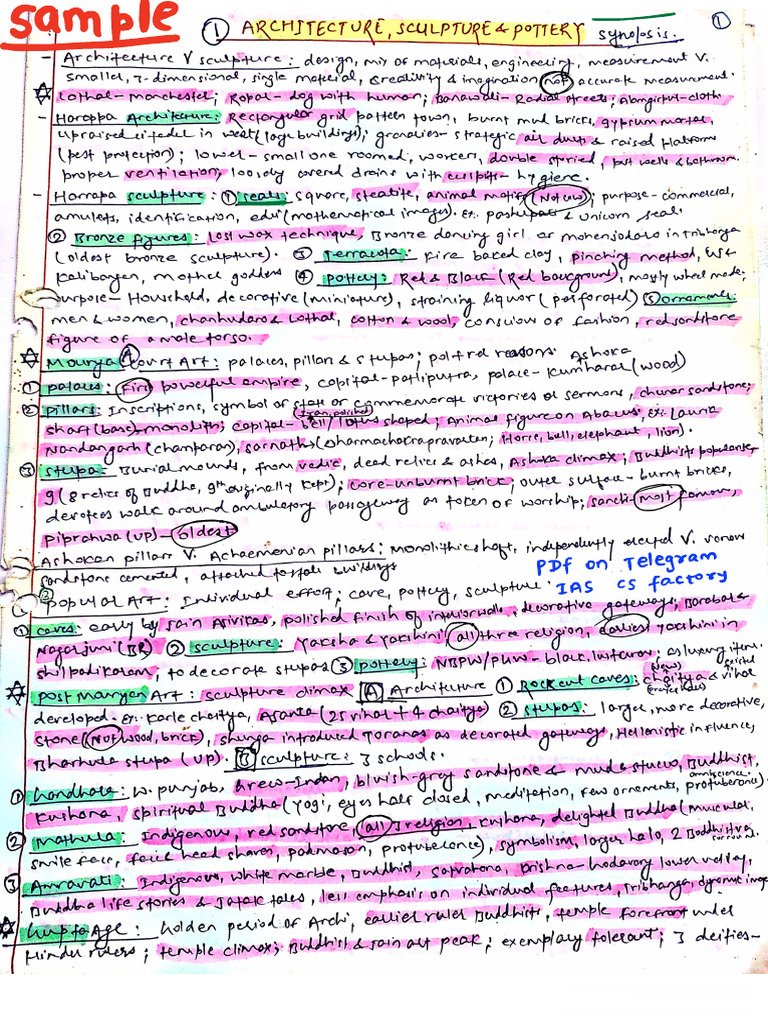 sample
① ARCHITECTURE, SCULPTURE & POTTERY synopsis. ①
- Architecture V sculpture: design, mix of materials, engineering, measurement V.
smaller, 3-dimensional, single material, creativity & imagination not accurate measurement.
Lothal-manchester; Ropar-dog with human; Banawali-Radial streets; Alamgirpur-cloth
- Harappa Architecture: Rectangular grid pattern town, burnt mud bricks, gypsum mortar,
upraised citadel in west (large buildings); granaries-strategic air ducts & raised platforms
(pest protection); lower-small one roomed, workers, double storied, pvt wells & bathroom.
proper ventilation, loosely covered drains with cesspits- hygiene.
- Harrapa sculpture: ① seals: square, steatite, animal motifs (Not cow); purpose-commercial,
amulets, identification, edu (mathematical images). Ex: pashupati & unicorn seal.
② Bronze figures: Lost wax technique, Bronze dancing girl of mohenjodaro in tribhanga
(oldest bronze sculpture). ③ Terracota: Fire baked clay, pinching method,
Kalibangan, mother goddess ④ pottery: Red & Black (Red background), mostly wheel made;
purpose- Household, decorative (miniature), straining liquor (perforated) ⑤ ornaments:
men & women, chanhudaro & Lothal, cotton & wool, conscious of fashion, redsandstone
figure of a male torso.
Maurya Ⓐ Court Art: palaces, pillars & stupas; pol & rel reasons Ashoka
① palaces: First powerful empire, capital-patliputra, palace-Kumhrar (wood)
② pillars: Inscriptions, symbol of state or commemorate victories or sermons, chunar sandstone;
shaft (base), monolith; capital- bell/lotus shaped; Animal figure on Abacus, Ex: Lauria
Nandangarh (champaran), sarnath (Dharmachakrapravartan; Horse, bull, elephant, lion).
③ stupa: Burial mounds, from vedic, dead relics & ashes, Ashoka climax, Buddhists popularise,
9 (8 relics of Buddha, 9th originally kept); core-unburnt brick; outer surface- burnt bricks,
devotees walk around ambulatory passageway as token of worship; sanchi-most famous,
Piprahwa (up)- oldest
Ashokan pillars V. Achaemenian pillars: monolithic shaft, independently erected V. various
sandstone cemented, attached to state buildings
PDf on Telegram
IAS CS factory
② popular Art: Individual effort; cave, pottery, sculpture.
① caves: early by Jain Ajivikas, polished finish of interior walls, decorative gateways; Barabar &
Nagarjuni (BR) ② sculpture: Yaksha & Yakshini all three religion, earliest Yakshini in
shilpadikaram, to decorate stupas ③ pottery: NBPW/ - black, lustrous; as luxury item.
post mauryan Art: sculpture climax Ⓐ Architecture ① Rockcut caves: chaitya & vihar
developed. Ex: Karle chaitya, Ajanta (25 vihar + 4 chaitya) ② stupas: larger, more decorative,
stone (Not wood, brick), shunga introduced Toranas as decorated gateways, Hellenistic influence,
Bharhut stupa (UP). Ⓑ sculpture: 3 schools.
① Gandhara: W. punjab, Greco-Indan, bluish-grey sandstone & mud & stucco, Buddhist,
Kushana, spiritual Buddha (yogi, eyes half closed, meditation, few ornaments, protuberance).
② Mathura: Indigenous, red sandstone, all 3 religion, Kushana, delighted Buddha (muscular,
smile face, face & head shaven, padmasan, protuberence), symbolism, larger halo,
③ Amravati: Indigenous, white marble, Buddhist, satvahana, Krishna-Godavary lower valley,
Buddha life stories & Jatak tales, less emphasis on individual features, Tribhanga, dynamic image
Gupta Age: Golden period of Archi, earlier ruler Buddhist, temple forefront under
Hindu rulers; temple climax; Buddhist & Jain art peak; exemplary tolerant; 3 deities-